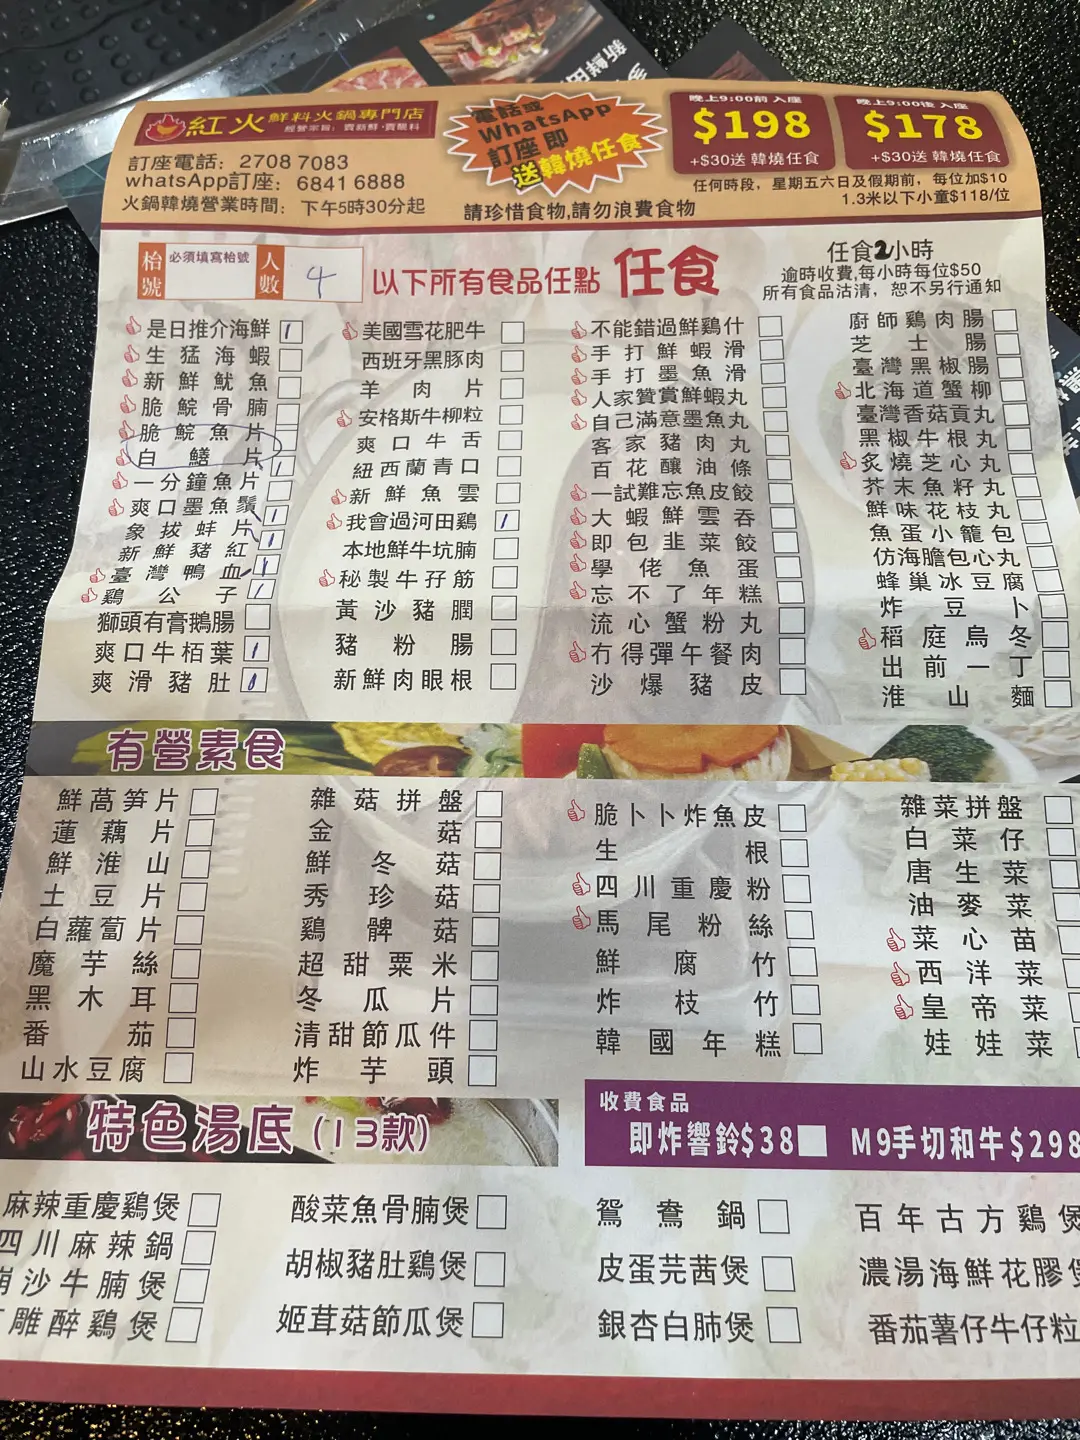 新鮮
紅火 鮮料火鍋專門店
經營宗旨：賣新鮮·賣靚料
訂座電話：2708 7083
whatsApp訂座：6841 6888
火鍋韓燒營業時間：下午5時30分起
電話或
WhatsApp
訂座即
送韓燒任食
請珍惜食物,請勿浪費食物
晚上9:00前 入座
$198
+$30送 韓燒任食
晚上9:00後 入座
$178
+$30送 韓燒任食
任何時段，星期五六日及假期前，每位加$10
1.3米以下小童$118/位
枱號
必須填寫枱號
人數
4
以下所有食品任點 任食
任食2小時
逾時收費,每小時每位$50
所有食品沽清，恕不另行通知
是日推介海鮮 1
生猛海蝦
新鮮魷魚
脆鯇骨腩
脆鯇魚片
白鱔片 1
一分鐘魚片
爽口墨魚鬚 1
象拔蚌片 1
新鮮豬紅
臺灣鴨血 1
鷄公子 1
獅頭有膏鵝腸
爽口牛栢葉 1
爽滑豬肚
美國雪花肥牛
西班牙黑豚肉
羊肉片
安格斯牛柳粒
爽口牛舌
紐西蘭青口
新鮮魚雲
我會過河田鷄 1
本地鮮牛坑腩
秘製牛孖筋
黃沙豬膶
豬粉腸
新鮮肉眼根
不能錯過鮮鷄什
手打鮮蝦滑
手打墨魚滑
人家贊賞鮮蝦丸
自己滿意墨魚丸
客家豬肉丸
百花釀油條
一試難忘魚皮餃
大蝦鮮雲吞
即包韭菜餃
學佬魚蛋
忘不了年糕
流心蟹粉丸
冇得彈午餐肉
沙爆豬皮
廚師鷄肉腸
芝士腸
臺灣黑椒腸
北海道蟹柳
臺灣香菇貢丸
黑椒牛根丸
炙燒芝心丸
芥末魚籽丸
鮮味花枝丸
魚蛋小籠包
仿海膽包心丸
蜂巢冰豆腐
炸豆卜
稻庭烏冬
出前一丁
淮山麵
有營素食
鮮萵笋片
蓮藕片
鮮淮山
土豆片
白蘿蔔片
魔芋絲
黑木耳
番茄
山水豆腐
雜菇拼盤
金菇
鮮冬菇
秀珍菇
鷄髀菇
超甜粟米
冬瓜片
清甜節瓜件
炸芋頭
脆卜卜炸魚皮
生根
四川重慶粉
馬尾粉絲
鮮腐竹
炸枝竹
韓國年糕
雜菜拼盤
白菜仔
唐生菜
油麥菜
菜心苗
西洋菜
皇帝菜
娃娃菜
特色湯底（13款）
收費食品
即炸響鈴$38 M9手切和牛$298
麻辣重慶鷄煲
四川麻辣鍋
沙牛腩煲
雕醉鷄煲
酸菜魚骨腩煲
胡椒豬肚鷄煲
姬茸菇節瓜煲
鴛鴦鍋
皮蛋芫茜煲
銀杏白肺煲
百年古方鷄煲
濃湯海鮮花膠煲
番茄薯仔牛仔粒